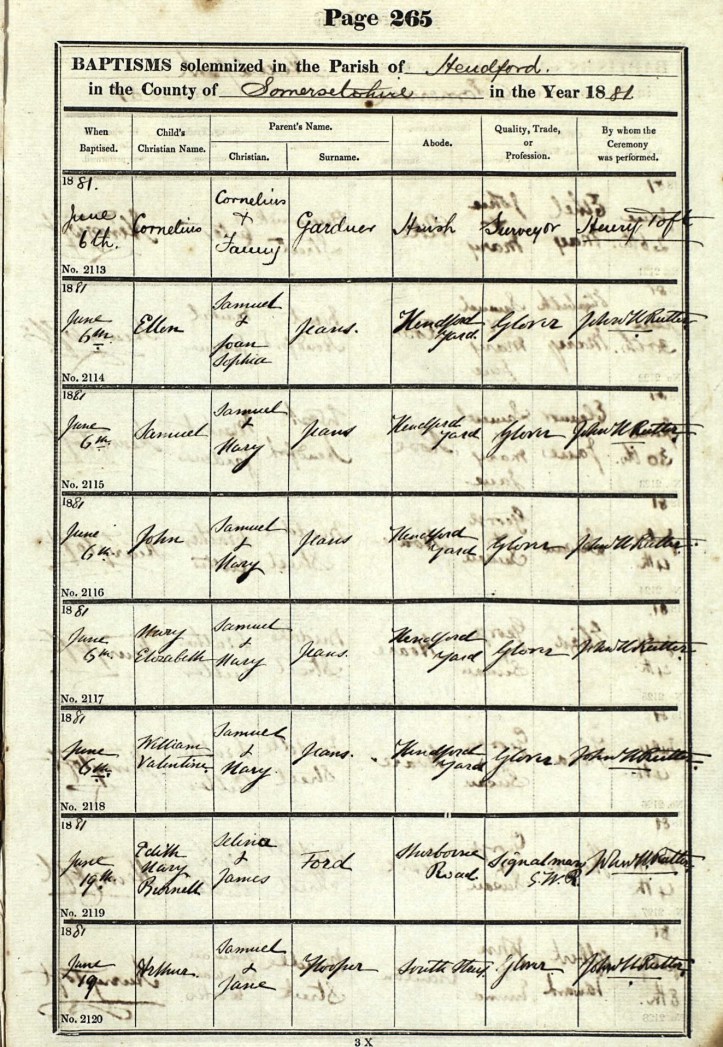 Page 265
BAPTISMS solemnized in the Parish of Hendford.
in the County of Somersetshire in the Year 1881
When Baptised.
Child's Christian Name.
Parent's Name.
Christian.
Surname.
Abode.
Quality, Trade, or Profession.
By whom the Ceremony was performed.
1881.
June 6th. Cornelius Cornelius & Fanny Gardner Huish Surveyor Henry Toft
No. 2113
1881
June 6th. Ellen Samuel & Joan Sophia Jeans. Hendford Yard. Glover John H Rutter
No. 2114
1881
June 6th. Samuel Samuel & Mary Jeans Hendford Yard Glover John H Rutter
No. 2115
1881
June 6th. John Samuel & Mary Jeans Hendford Yard Glover John H Rutter
No. 2116
1881
June 6th. Mary Elizabeth Samuel & Mary Jeans. Hendford Yard Glover John H Rutter
No. 2117
1881
June 6th. William Valentine. Samuel & Mary Jeans. Hendford Yard Glover John H Rutter
No. 2118
1881
June 19th. Edith Mary Selina & James Ford Sherborne Road Signalman G.W.R. John H Rutter
No. 2119
1881
June 19 Arthur. Samuel & Jane Hooper South Glover John H Rutter
No. 2120
3 X